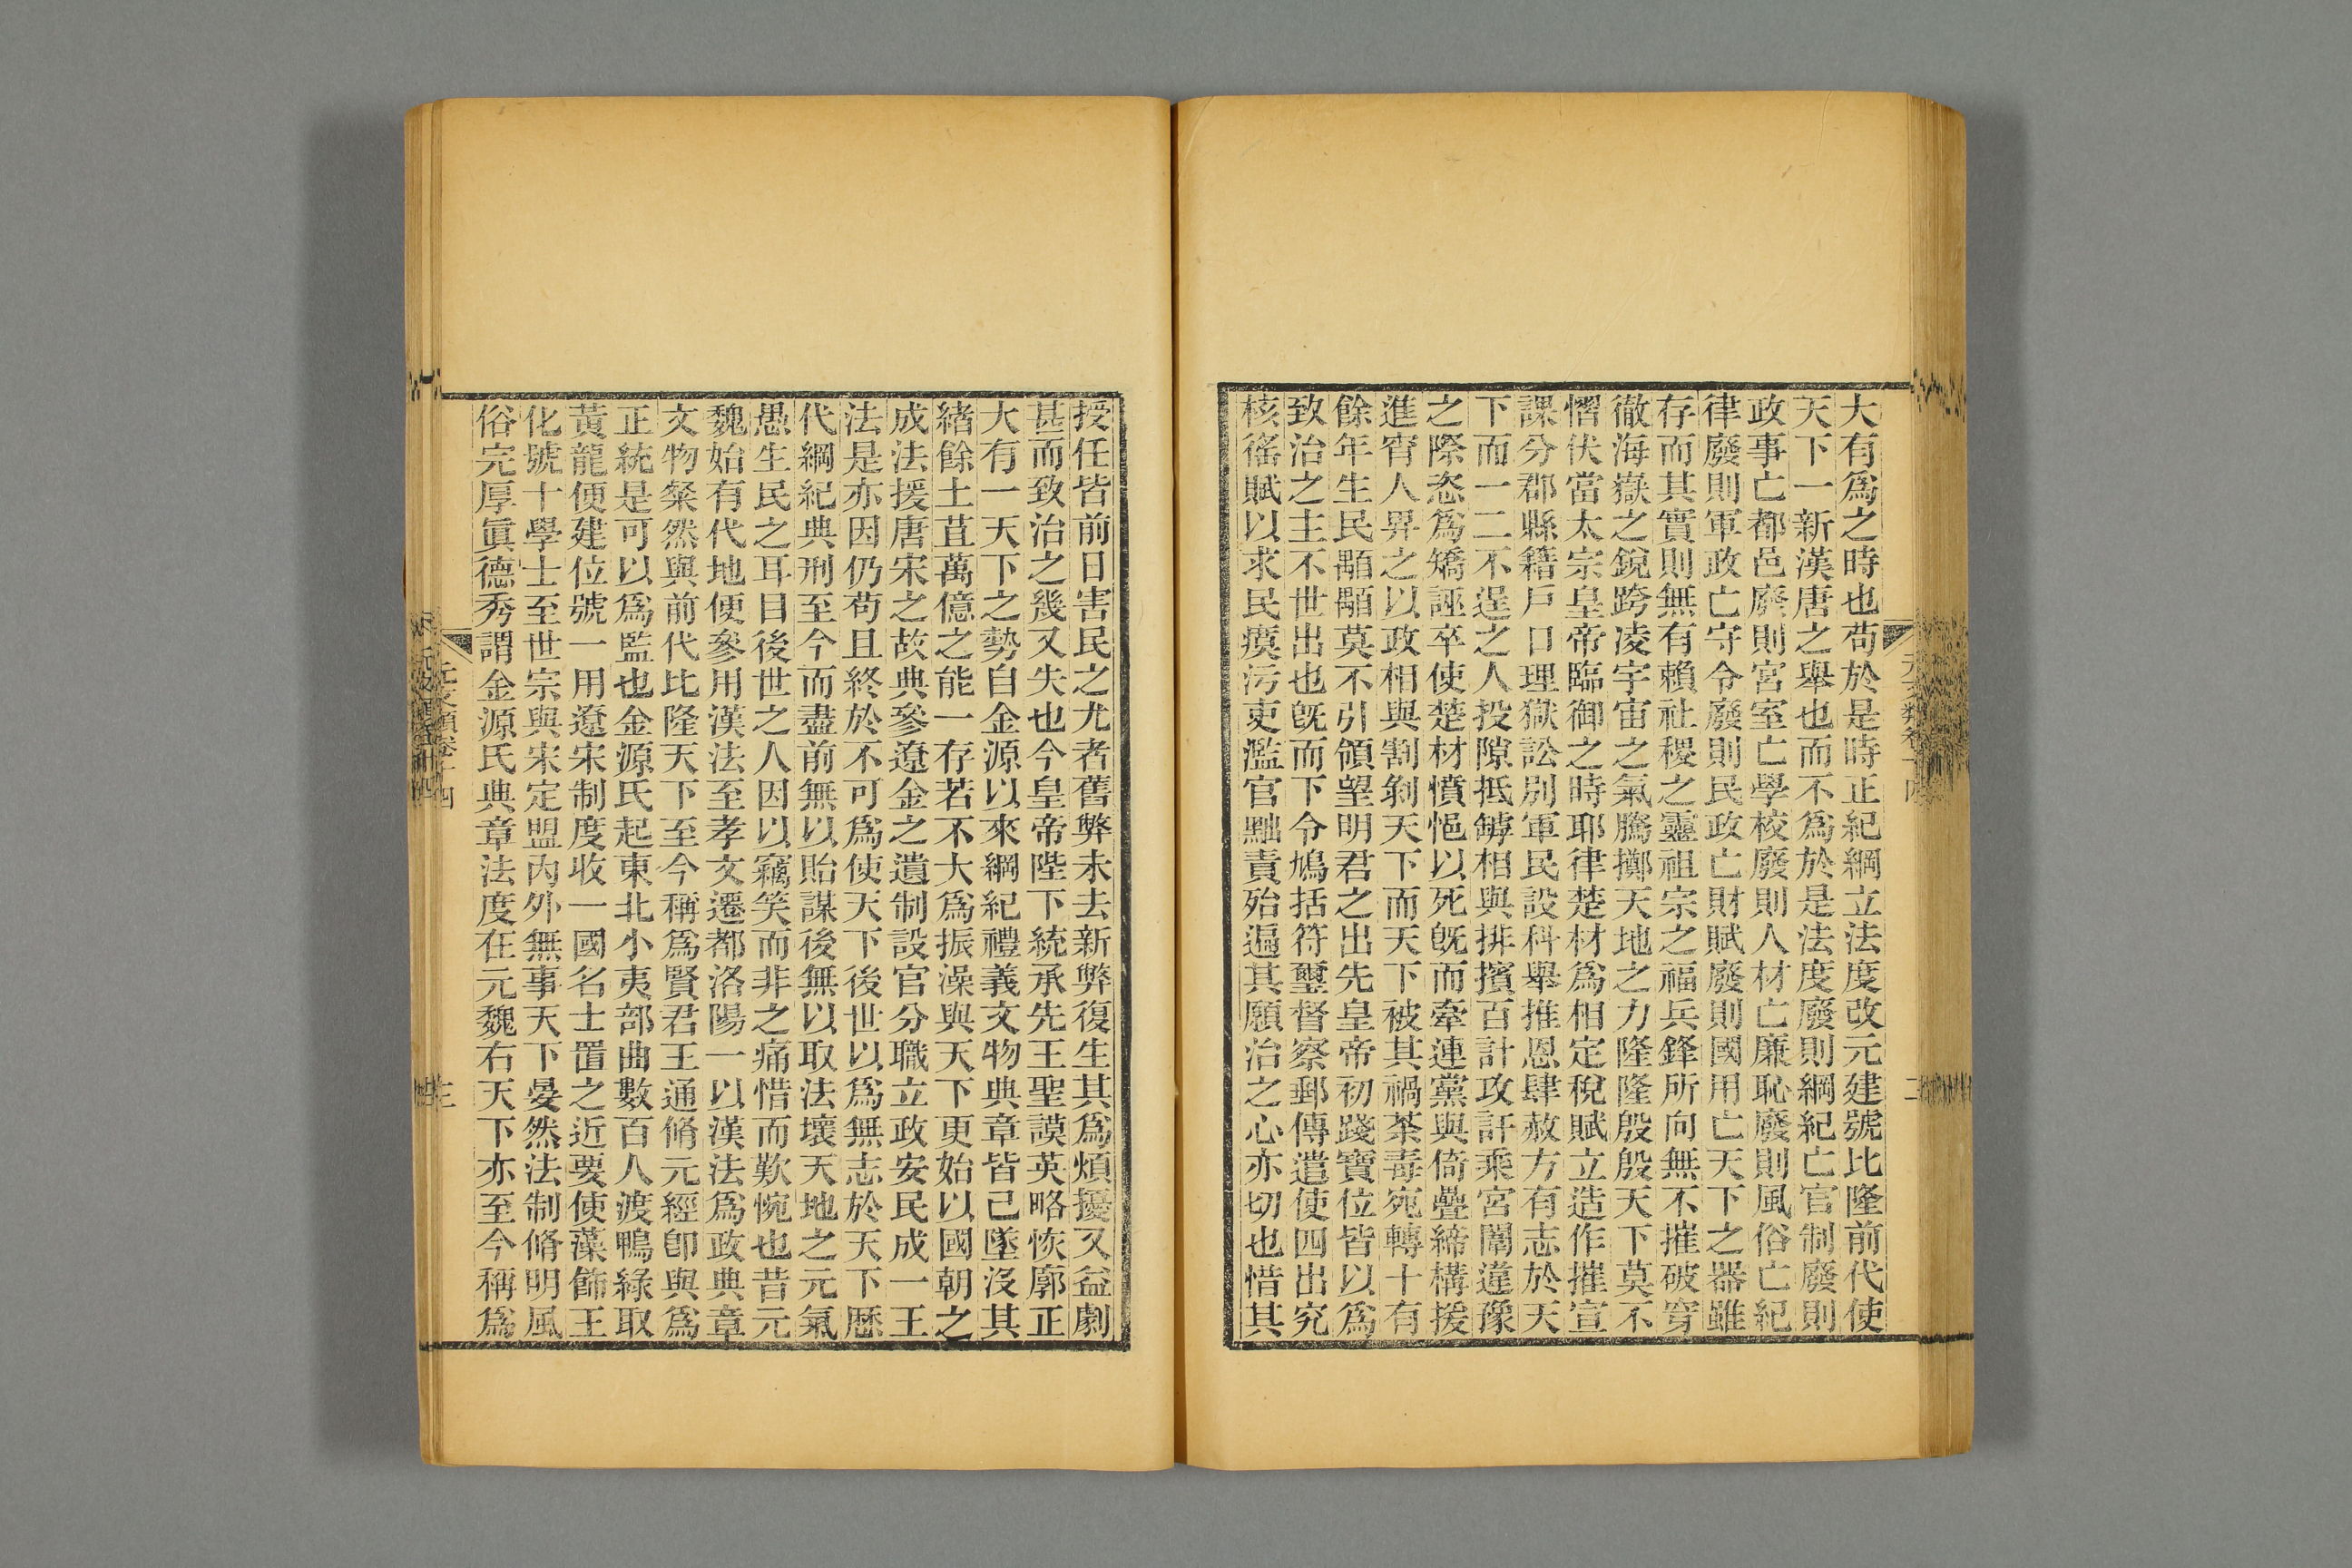 大有爲之時也苟於是時正紀綱立法度改元建號比隆前代使
天下一新漢唐之舉也而不爲於是法度廢則綱紀亡官制廢則
政事亡都邑廢則宮室亡學校廢則人材亡廉恥廢則風俗亡紀
律廢則軍政亡守令廢則民政亡財賦廢則國用亡天下之器雖
存而其實則無有賴社稷之靈祖宗之福兵鋒所向無不摧破穿
徹海嶽之銳跨凌宇宙之氣騰擲天地之力隆隆殷殷天下莫不
慴伏當太宗皇帝臨御之時耶律楚材爲相定稅賦立造作搉宣
課分郡縣籍戶口理獄訟別軍民設科舉推恩肆赦方有志於天
下而一二不逞之人投隙抵罅相與排擯百計攻訐乘宮闈違豫
之際恣爲矯誣卒使楚材憤悒以死旣而牽連黨與倚疊締構援
進宵人畀之以政相與割剝天下而天下被其禍荼毒宛轉十有
餘年生民顒顒莫不引領望明君之出先皇帝初踐寶位皆以爲
致治之主不世出也旣而下令鳩括符璽督察郵傳遣使四出究
核徭賦以求民瘼污吏濫官黜責殆遍其願治之心亦切也惜其
元文類卷十四
二
授任皆前日害民之尤者舊弊未去新弊復生其爲煩擾又益劇
甚而致治之幾又失也今皇帝陛下統承先王聖謨英略恢廓正
大有一天下之勢自金源以來綱紀禮義文物典章皆已墜沒其
緒餘土苴萬億之能一存若不大爲振澡與天下更始以國朝之
成法援唐宋之故典參遼金之遺制設官分職立政安民成一王
法是亦因仍苟且終於不可爲使天下後世以爲無志於天下歷
代綱紀典刑至今而盡前無以貽謀後無以取法壞天地之元氣
愚生民之耳目後世之人因以竊笑而非之痛惜而歎惋也昔元
魏始有代地便參用漢法至孝文遷都洛陽一以漢法爲政典章
文物粲然與前代比隆天下至今稱爲賢君王通脩元經卽與爲
正統是可以爲監也金源氏起東北小夷部曲數百人渡鴨綠取
黃龍便建位號一用遼宋制度收一國名士置之近要使藻飾王
化號十學士至世宗與宋定盟內外無事天下晏然法制脩明風
俗完厚眞德秀謂金源氏典章法度在元魏右天下亦至今稱爲
元文類卷十四
三